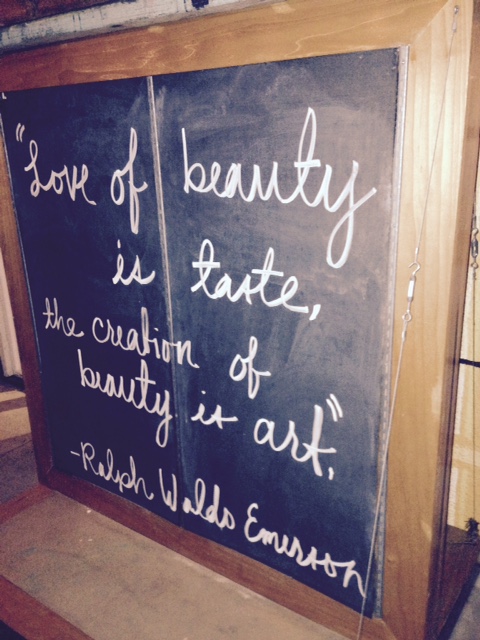 "Love of beauty
is taste,
the creation of
beauty is art."
-Ralph Waldo Emerson